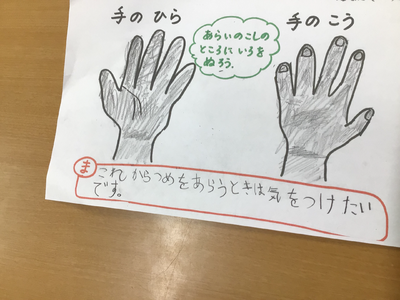 手の ひら
手の こう
あらいのこしの
ところに いろを
ぬろう.
ま
これからつめをあらうときは気をつけたい
です。